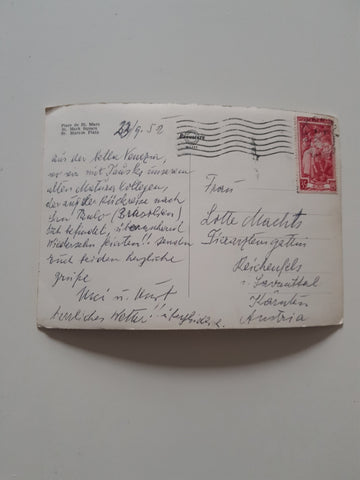 Place de St. Marc
St. Mark Square
St. Markus Platz
22/9. 52
aus der bella Venezia,
wo wir mit unserem
alten Matura Kollegen,
der auf der Rückreise nach
Sao Paulo (Brasilien)
sich befindet, überraschend
Wiedersehn feierten!! senden
Euch beiden herzliche
Grüße
u. Kurt
herrliches Wetter!!
Frau
Lotte Machts
Tierarztensgattin
Reichenfels
i. Lavanttal
Kärnten
Austria